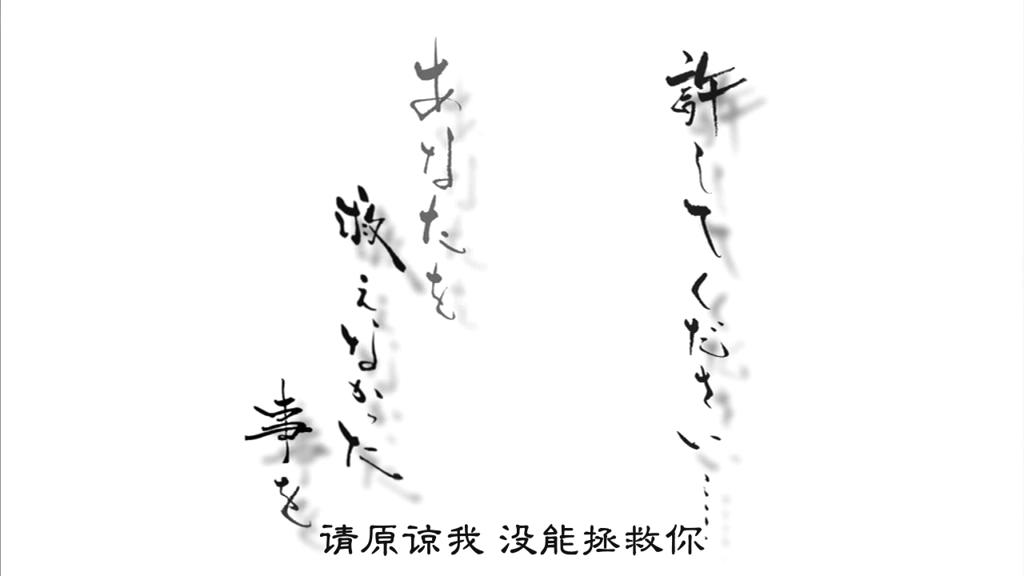 許してください……
あなたを
救えなかった
事を
请原谅我 没能拯救你